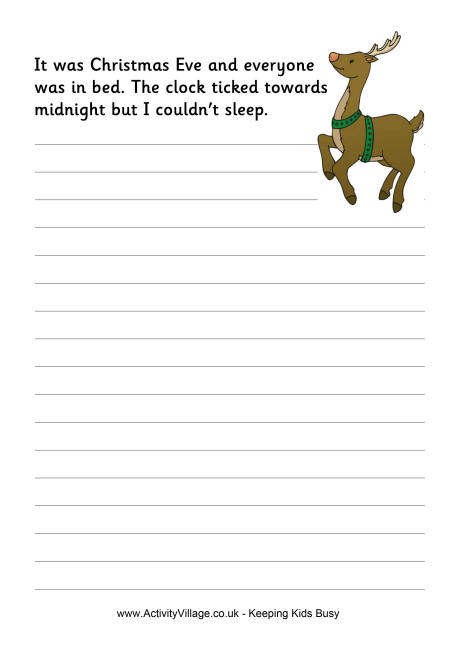 It was Christmas Eve and everyone
was in bed. The clock ticked towards
midnight but I couldn't sleep.
www.ActivityVillage.co.uk - Keeping Kids Busy